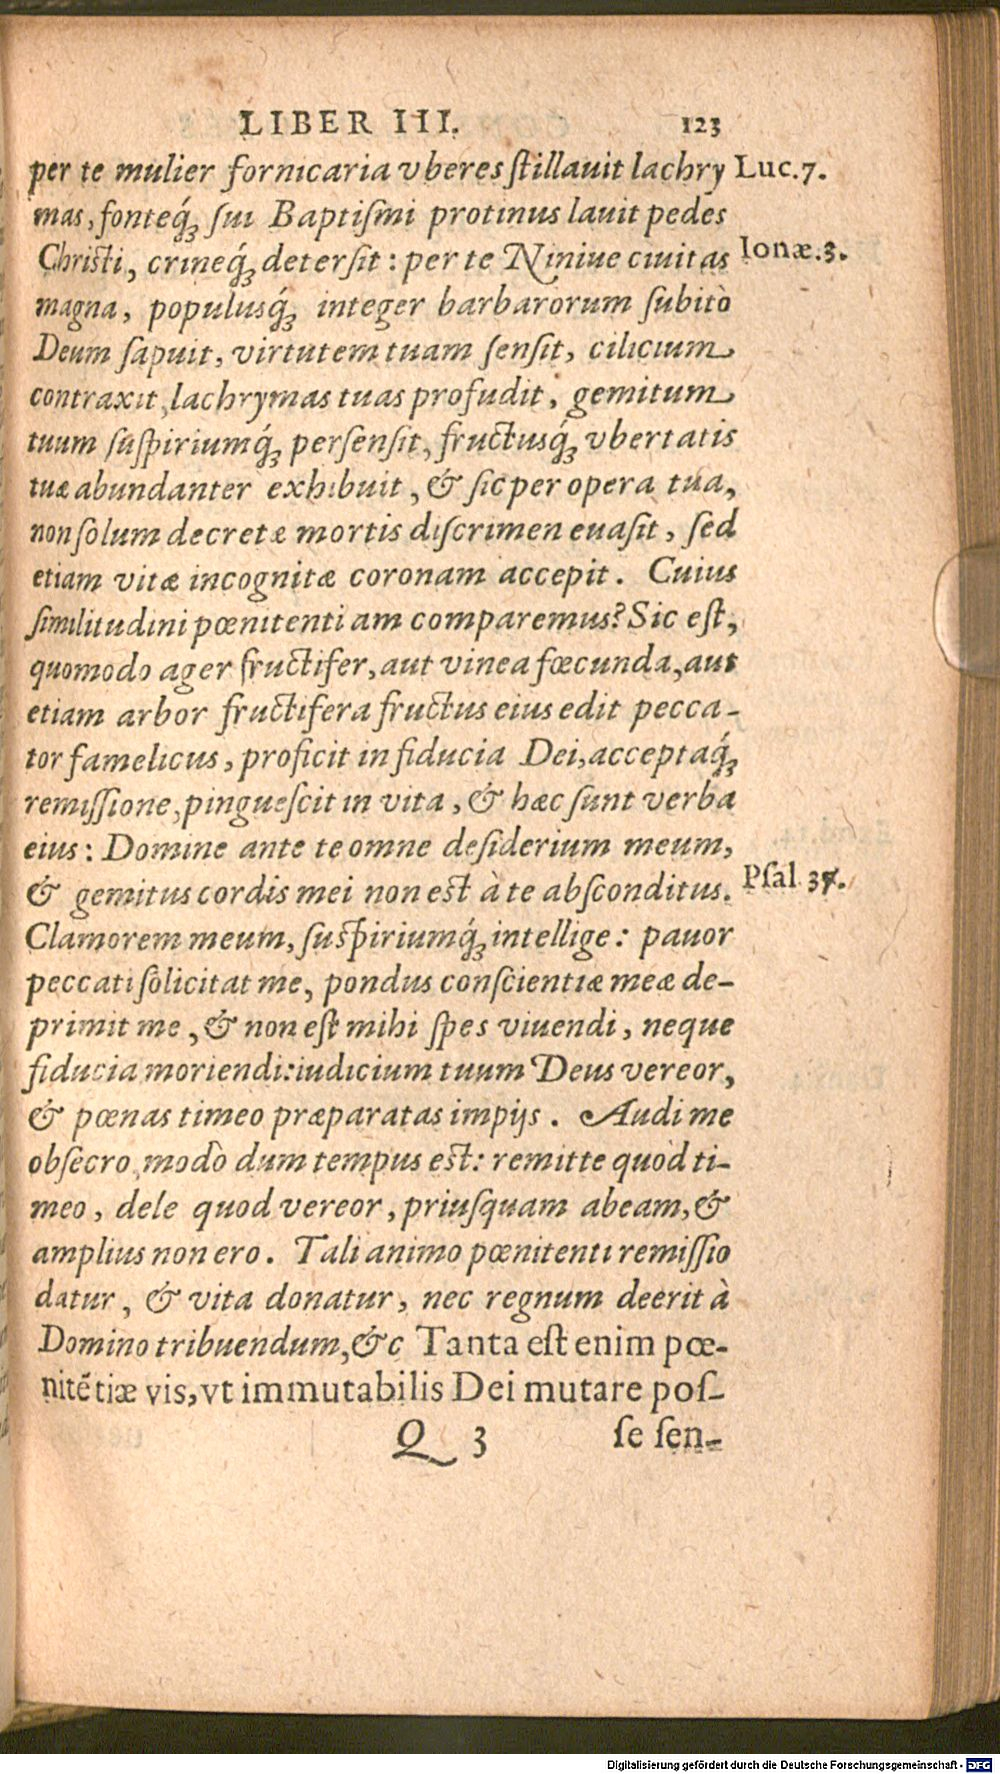 LIBER III. 123
per te mulier fornicaria vberes ſtillauit lachry Luc. 7.
mas, fonteq́ꝫ ſui Baptiſmi protinus lauit pedes
Chriſti, crineq́ꝫ deterſit : per te Niniue ciuitas Ionæ. 3.
magna, populusq́ꝫ integer barbarorum ſubitò
Deum ſapuit, virtutem tuam ſenſit, cilicium
contraxit, lachrymas tuas profudit, gemitum
tuum ſuſpiriumq́ꝫ perſenſit, fructusq́ꝫ vbertatis
tuæ abundanter exhibuit, & ſic per opera tua,
non ſolum decretæ mortis diſcrimen euaſit, ſed
etiam vitæ incognitæ coronam accepit. Cuius
ſimilitudini pœnitentiam comparemus? Sic eſt,
quomodo ager fructifer, aut vinea fœcunda, aut
etiam arbor fructifera fructus eius edit pecca-
tor famelicus, proficit in fiducia Dei, acceptaq́ꝫ
remiſſione, pingueſcit in vita, & hæc ſunt verba
eius : Domine ante te omne deſiderium meum,
& gemitus cordis mei non eſt à te abſconditus. Pſal 37.
Clamorem meum, ſuſpiriumq́ꝫ intellige : pauor
peccati ſolicitat me, pondus conſcientiæ meæ de-
primit me, & non eſt mihi ſpes viuendi, neque
fiducia moriendi: iudicium tuum Deus vereor,
& pœnas timeo præparatas impijs. Audi me
obſecro, modò dum tempus eſt: remitte quòd ti-
meo, dele quod vereor, priuſquam abeam, &
amplius non ero. Tali animo pœnitenti remiſſio
datur, & vita donatur, nec regnum deerit à
Domino tribuendum, &c Tanta eſt enim pœ-
nitētiæ vis, vt immutabilis Dei mutare poſ-
Q 3 ſe ſen-
Digitalisierung gefördert durch die Deutsche Forschungsgemeinschaft - DFG